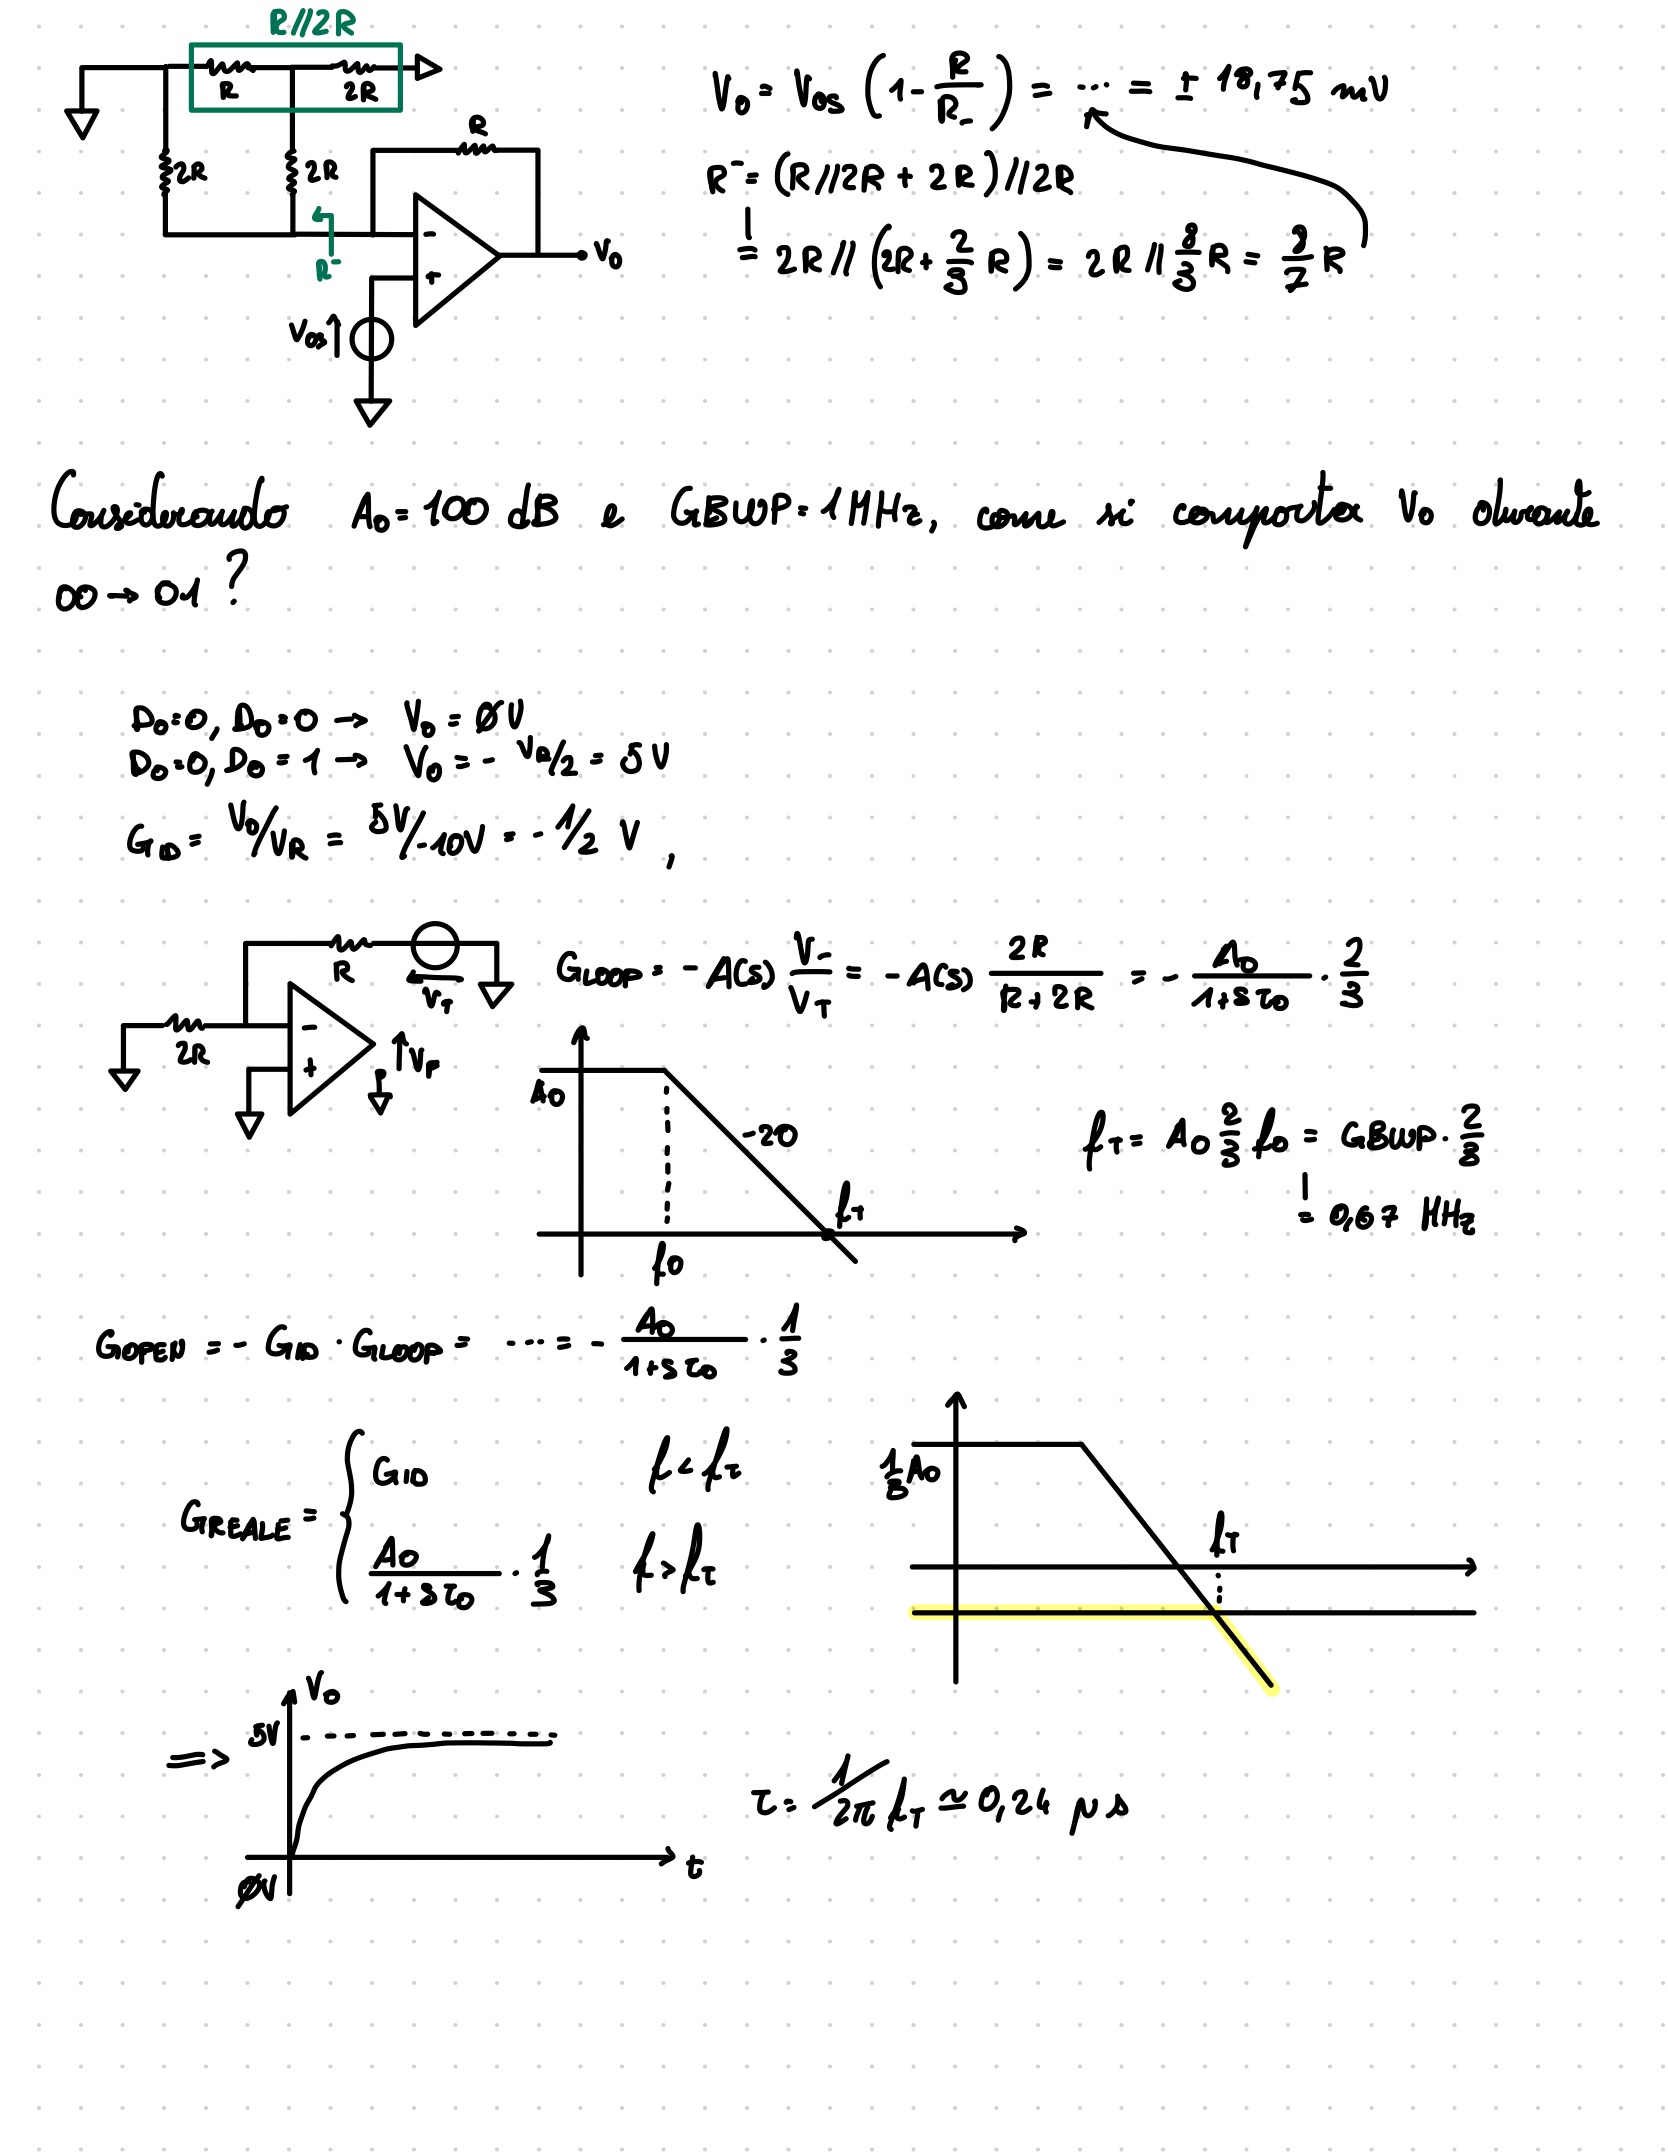 R//2R
R 2R
2R 2R R
R⁻
- +
Vos
Vo
Vo = Vos (1 - R/R-) = ... = ± 18,75 mV
R⁻ = (R//2R + 2R)//2R
= 2R//(2R + 2/3 R) = 2R // 8/3 R = 8/7 R
Considerando A0 = 100 dB e GBWP = 1 MHz, come si comporta Vo durante
00 → 01 ?
D0=0, D0=0 → Vo = ØV
D0=0, D0=1 → Vo = - VR/2 = 5V
GID = Vo/VR = 5V/-10V = - 1/2 V ,
R VT
2R
- +
VF
GLOOP = - A(s) V-/VT = - A(s) 2R/(R+2R) = - A0/(1+sτ0) · 2/3
A0
-20
fT
f0
fT = A0 2/3 f0 = GBWP · 2/3
= 0,67 MHz
GOPEN = - GID · GLOOP = ... = - A0/(1+sτ0) · 1/3
GREALE = { GID f < fT
A0/(1+sτ0) · 1/3 f > fT
1/3 A0
fT
⇒
Vo
5V
ØV
t
τ = 1/2π fT ≃ 0,24 μs